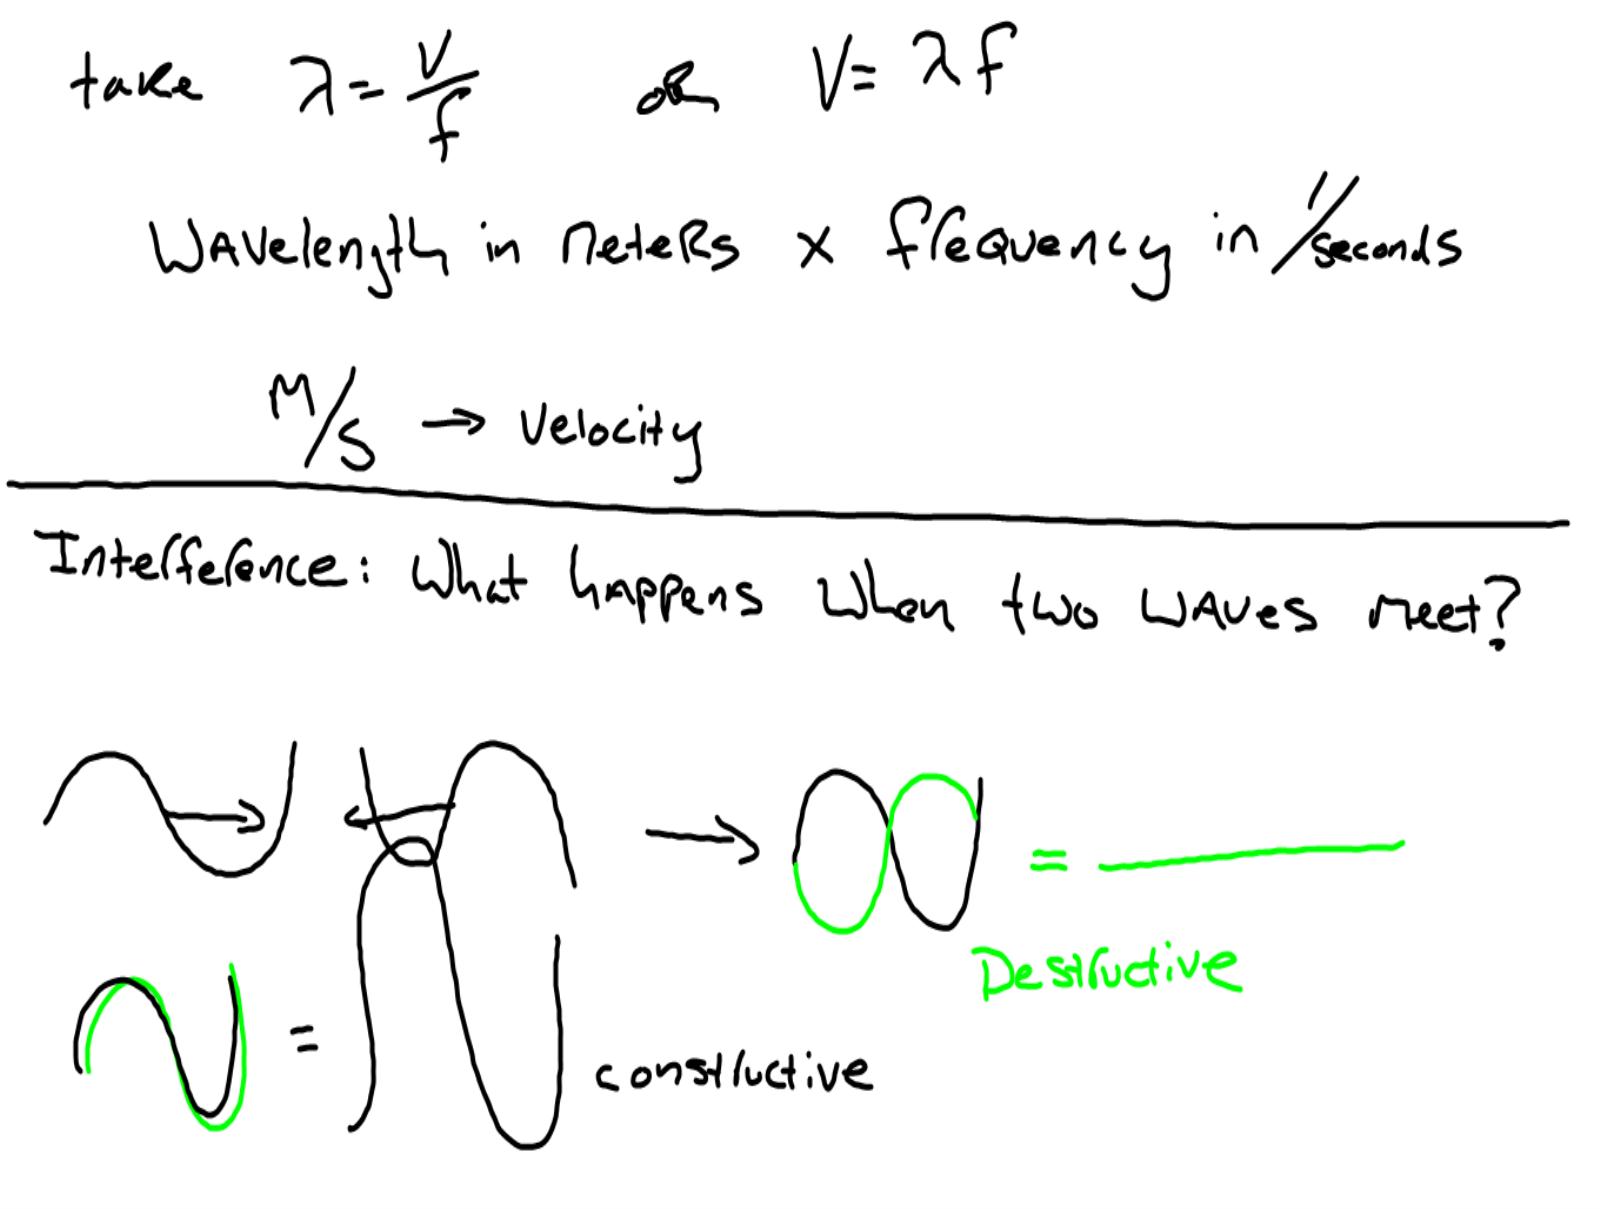 take λ = v/f or V = λf
Wavelength in meters x frequency in 1/seconds
m/s → velocity
Interference: What happens when two waves meet?
=
Destructive
= constructive